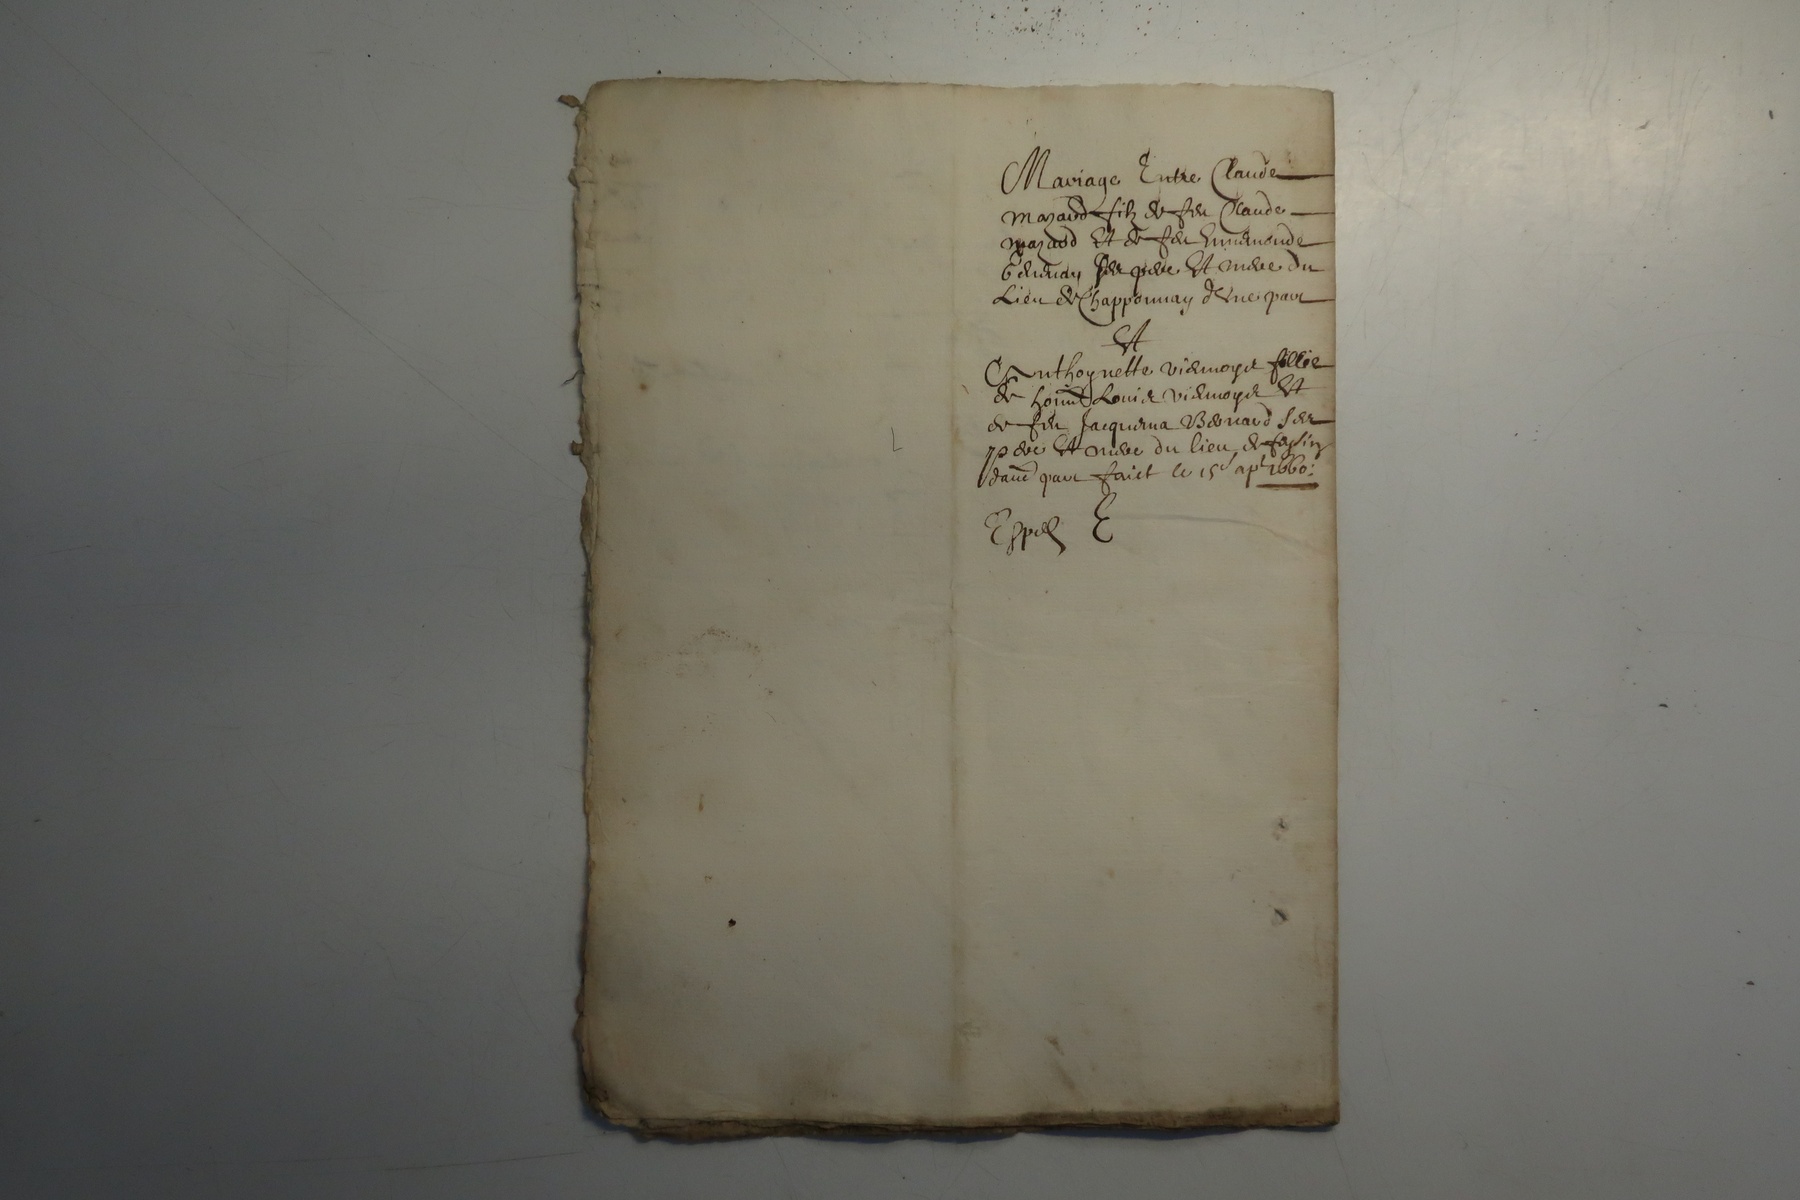 Mariage Entre Claude
mazard filz de feu Claude
mazard Et de feu Ennemonde
ses pere Et mere du
Lieu de Chapponnay d'Une part
Et
Anthoynette viemoyes fillie
de honne Louis viemoyes Et
de feu Jacquema Bernard ses
pere Et mere du lieu de feysin
daue part faict le 15e apl 1660:
Expes E